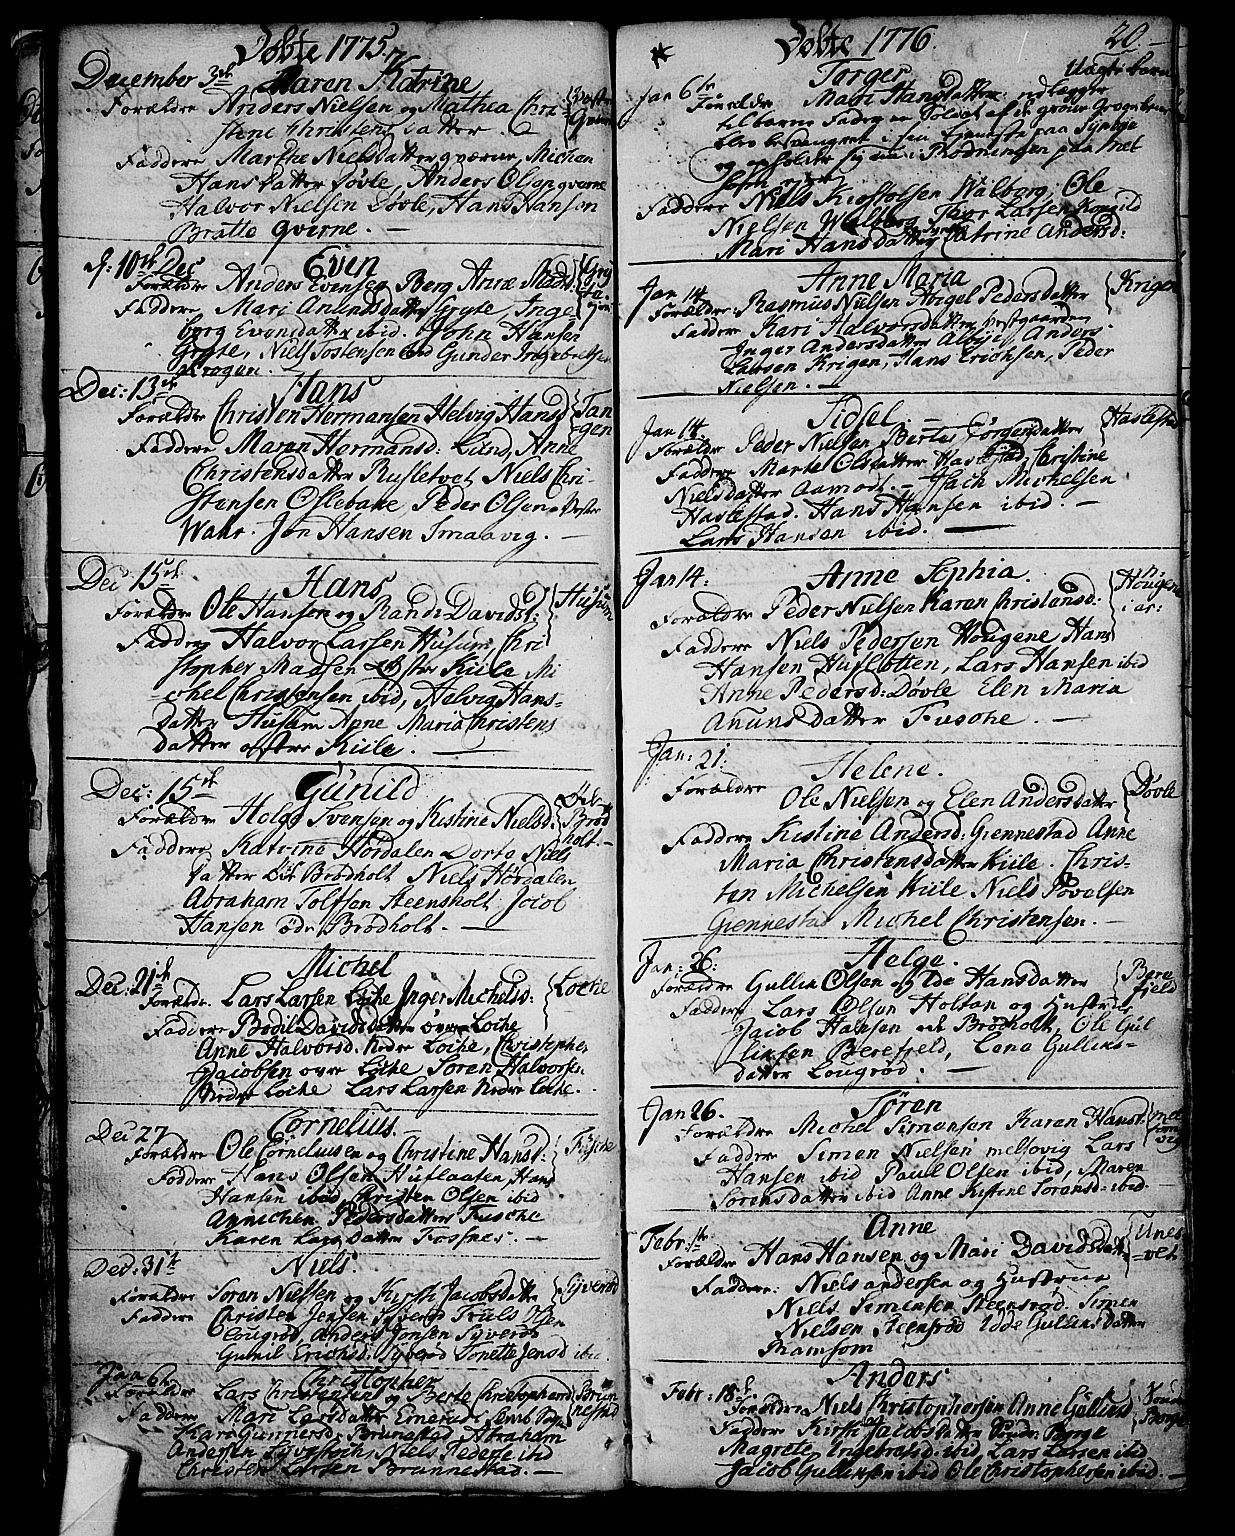 Døbte 1775
December 3de Karen Katrine
Forældre Anders Nielsen og Mathea Chri
stine Christens datter.
Faddere Marthe Nielsdatter qværne, Michen
Hansdatter Døvle, Anders Olsen qverne
Halvor Nielsen Døvle, Hans Hansen
Bratte qverne. —
d: 10de Dec Even
Forældre Anders Evensen Berg Anne Mads
Faddere Mari Anundsdatter Gryte, Inge
borg Evensdatter ibid. John Hansen
Gryte, Niels Tostensen ibid Gunder Ingebretsen
Krogen.
Dec: 13de Hans
Forældre Christen Hermansen Helvig Hansd Tan
Faddere Maren Hermansd: Lund, Anne gen
Christensdatter Rusletvet Niels Chri-
stensen Oslebake Peder Olsen Vester
Wahr. Jon Hansen Smaavig. —
Dec 15de Hans
Forældre Ole Hansen og Randi Davidsd: Husum
Faddere Halvor Larsen Husum, Chri
stopher Madsen Østre Kiile Mi
chel Christensen ibid, Helvig Hans-
datter Husum Anne Maria Christens
datter østre Kiile. —
Dec: 15de Gunild
Forældre Holge Svensen og Kistine Nielsd: Brød
Faddere Katrine Hørdalen Dorte Niels holt.
datter Brødholt Niels Hørdalen
Abraham Tolfsen Steensholt Jacob
Hansen øde Brødholt. —
Michel
Dec: 21de
Forældr. Lars Larsen Loche Inger Michelsd: Loche
Faddere Bodil Davidsdatter øvre Loche
Anne Halvorsd. Nedre Loche, Christopher
Jacobsen øvre Loche Søren Halvorsen
Nedre Loche Lars Larsen Nedre Loche.
Dec 27 Cornelius. —
Forældre Ole Corneliusen og Christine Hansd: Fusche
Faddere Hans Olsen Huflaaten, Hans
Hansen ibid Christen Olsen ibid
Annichen Pedersdatter Fusche
Karen Larsdatter Fossnes. —
Dec: 31te Niels.
Forældre Søren Nielsen og Kirsti Jacobsdatter Syverød
Faddere Christen Jensen Syverød Truls Olsen
Lougrød, Anders Jonsen Syverød
Gunil Erichsd: Syverød Tonette Jensd ibid
Jan 6te Christopher
Forældre Lars Christensen og Berte Christophersd Brun
Faddere Mari Larsdatter nestad
Kari Gunnersd: Brunestad Abraham
Andersen Niels Pedersen ibid
Christen Larsen Brunnestad. —
Døbte 1776. 20. —
Torger Uægte barn
Jan 6te
Forældre Mari Hansdatter: udlægger
til barne Fader en Soldat
Faddere Niels Kistolsen Walborg, Ole
Nielsen Walborg Lars Larsen
Mari Hansdatter Catrine Andersd:
Anne Maria
Jan 14 Krigen
Forældre: Rasmus Nielsen Abigel Pedersdatter
Faddere Kari Halvorsdatter Præstgaarden
Inger Andersdatter Anders
Larsen Krigen, Hans Erichsen, Peder
Nielsen. —
Sidsel
Jan 14 Haslestad
Forældre Peder Nielsen Berte Jørgensdatter
Faddere Marte Olsdatter Haslestad, Christine
Nielsdatter Aamodt — Isach Michelsen
Haslestad. Hans Hansen ibid. —
Lars Hansen ibid. —
Jan 14: Anne Sophia. Hougene
Forældre Peder Nielsen Karen Christensd:
Faddere Niels Pedersen Hougene Hans
Hansen Huflotten, Lars Hansen ibid
Anne Pedersd: Døvle Elen Maria
Anunsdatter Fusche. —
Jan: 21: Helene.
Forældre Døvle
Ole Nielsen og Elen Andersdatter
Faddere Kistine Andersd: Giennestad Anne
Maria Christensdatter Kiile. Chris-
ten Michelsen Kiile Niels Povelsen
Giennestad Michel Christensen. —
Jan: 26: Helge. Bere
Forældre Gullin Olsen og Ide Hansdatter field
Faddere Lars Olsen Holtan og Hustrue
Jacob Hansen øde Brødholt, Ole Gul
linsen Berefield, Lena Gullins-
datter Lougrød. —
Jan 26. Søren
Forældre Michel Simensen Karen Hansd: mel
Faddere Simen Nielsen melsovig Lars
Hansen ibid Paul Olsen ibid, Maren
Sørensdatter ibid Anne Kistine Sørensd: ibid.
Febr: Anne
Forældre Hans Hansen og Mari Davidsdatter Unes
Faddere: Niels andersen og Hustrue vet.
Niels Simensen Steensrød. Simen
Nielsen Steensrød Idde Gullinsdatter
Ramsom
Anders
Febr: 18de
Forældre Niels Kristophersen Anne Gullisd
Faddere Kirsti Jacobsdatter Berge
Magrete Ingebretsd: ibid, Lars Larsen ibid
Jacob Gullinsen ibid Ole Christophersen ibid. —